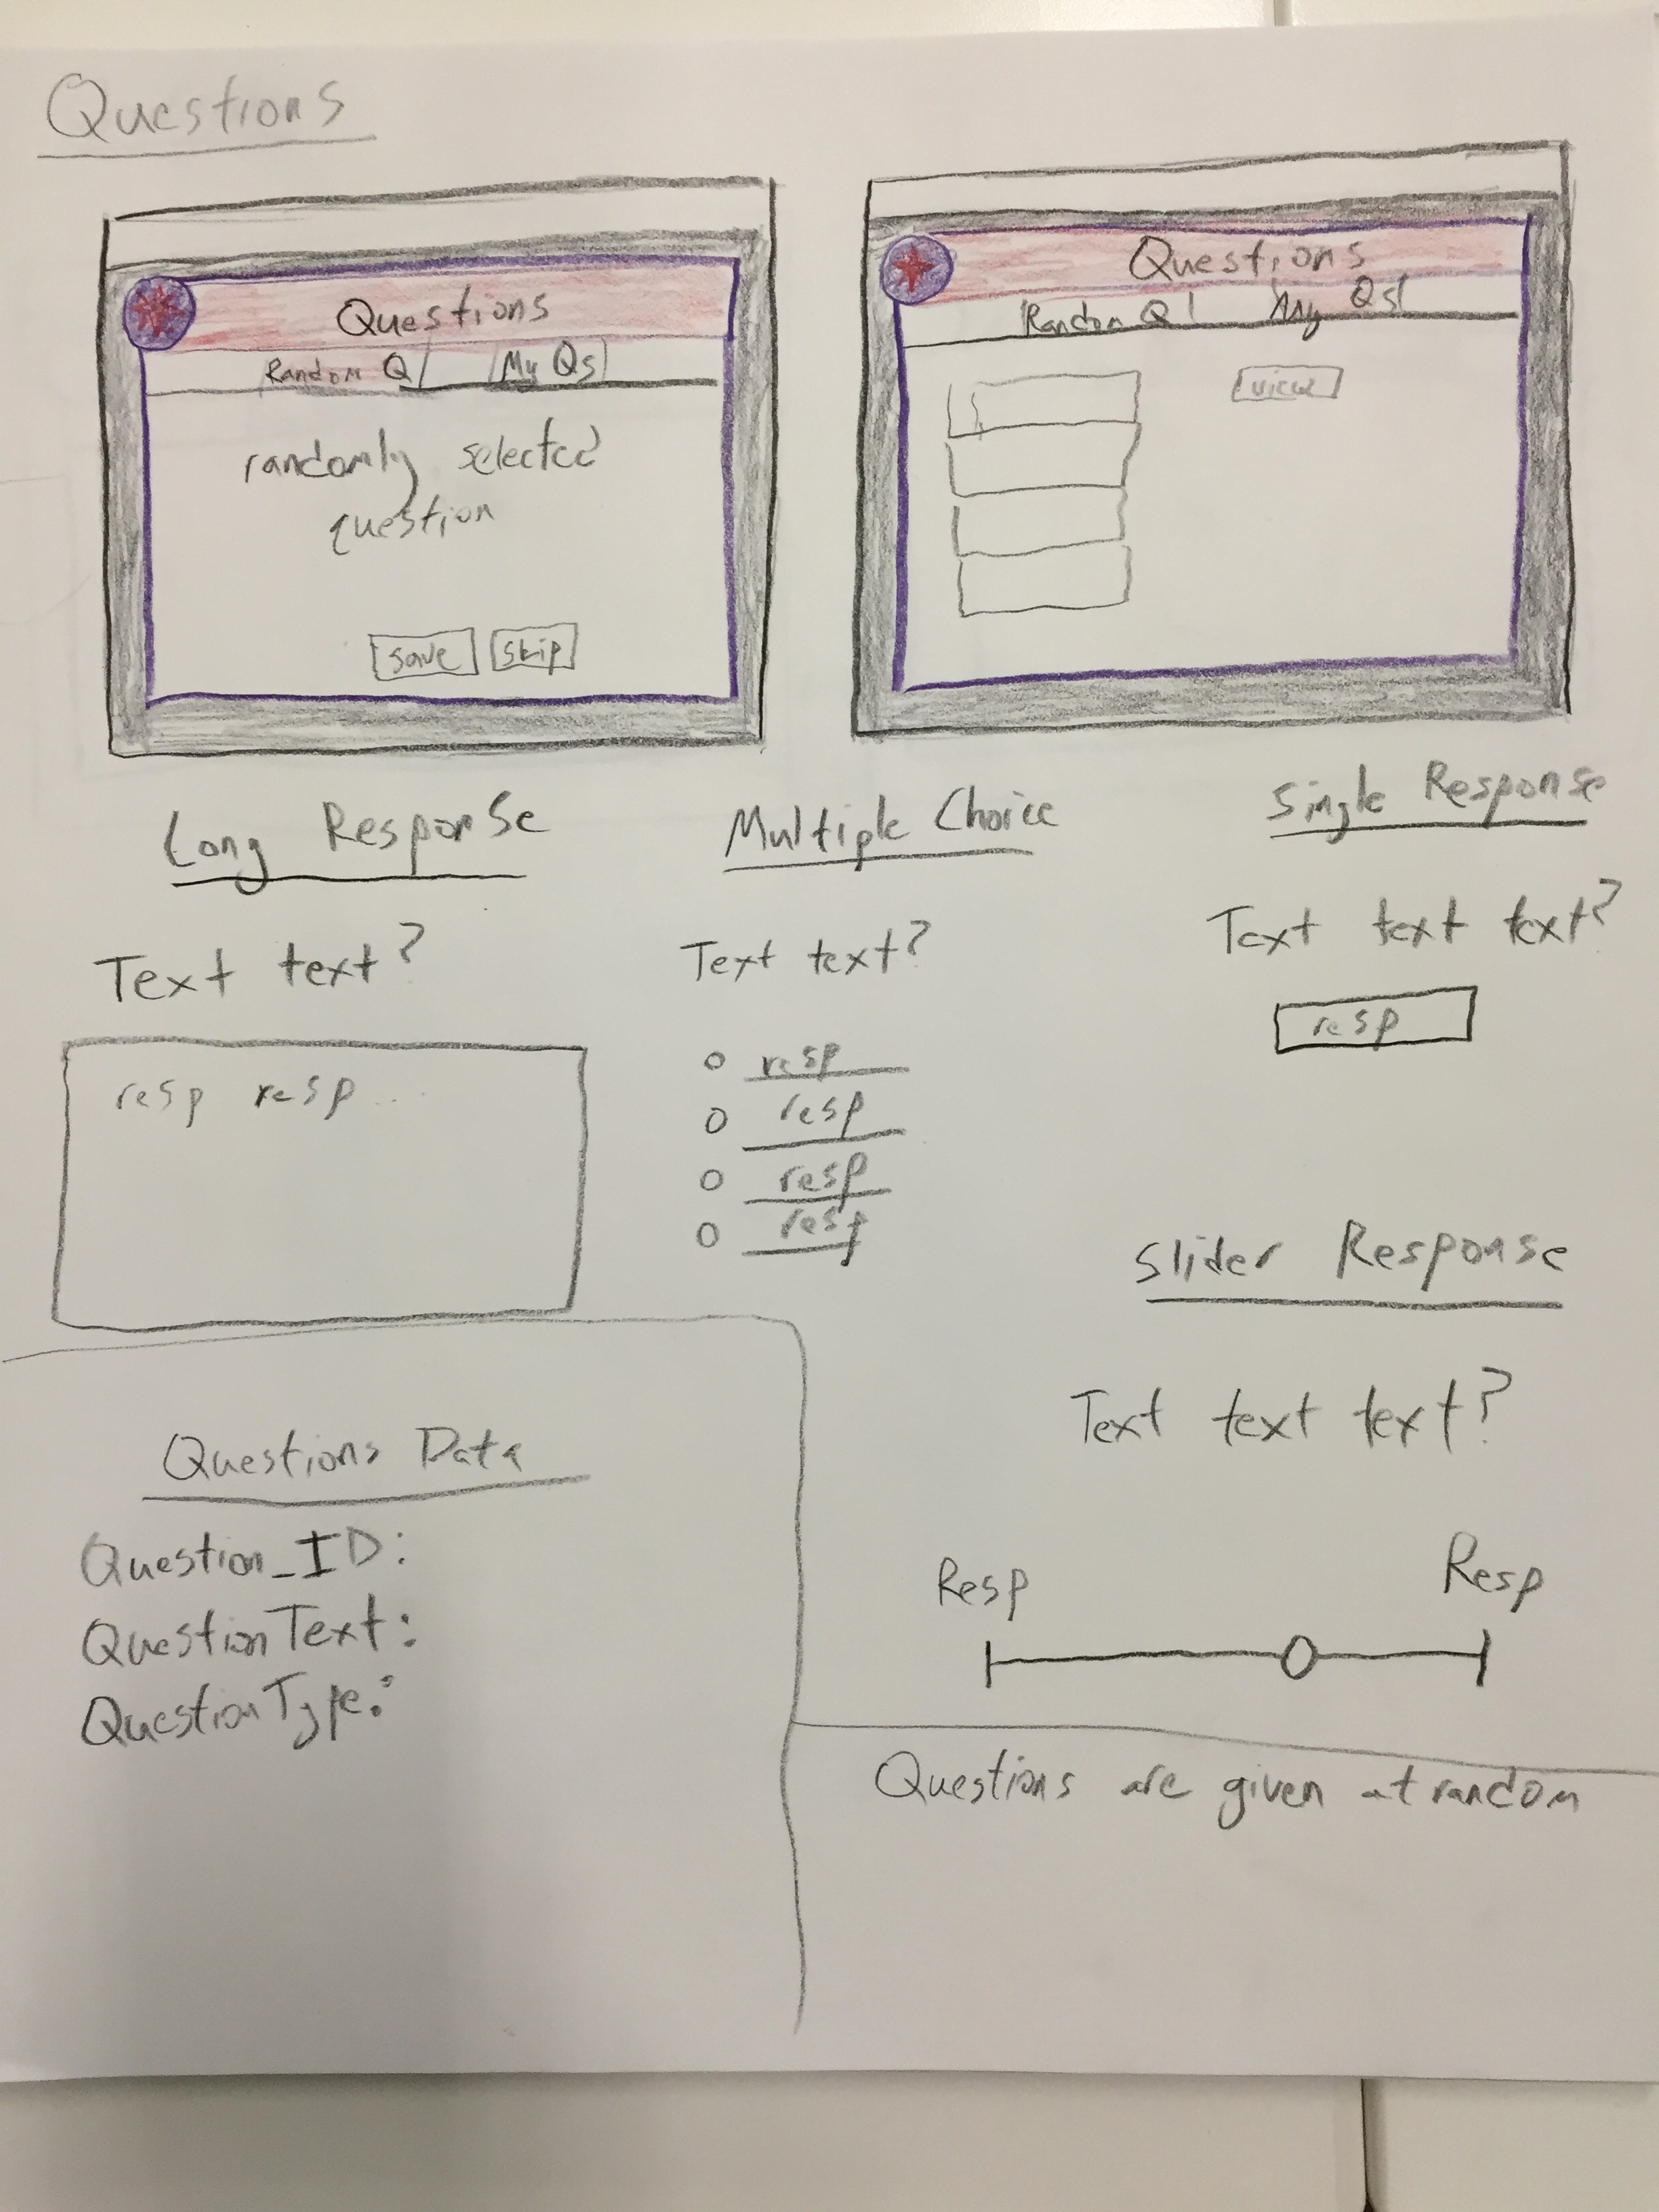 Questions
Questions
Random Q My Qs
randomly selected
question
save skip
Questions
Random Q My Qs
view
Long Response
Text text?
resp resp...
Multiple Choice
Text text?
resp
resp
resp
resp
Single Response
Text text text?
resp
Slider Response
Text text text?
Resp Resp
Questions Data
Question_ID:
QuestionText:
QuestionType:
Questions are given at random